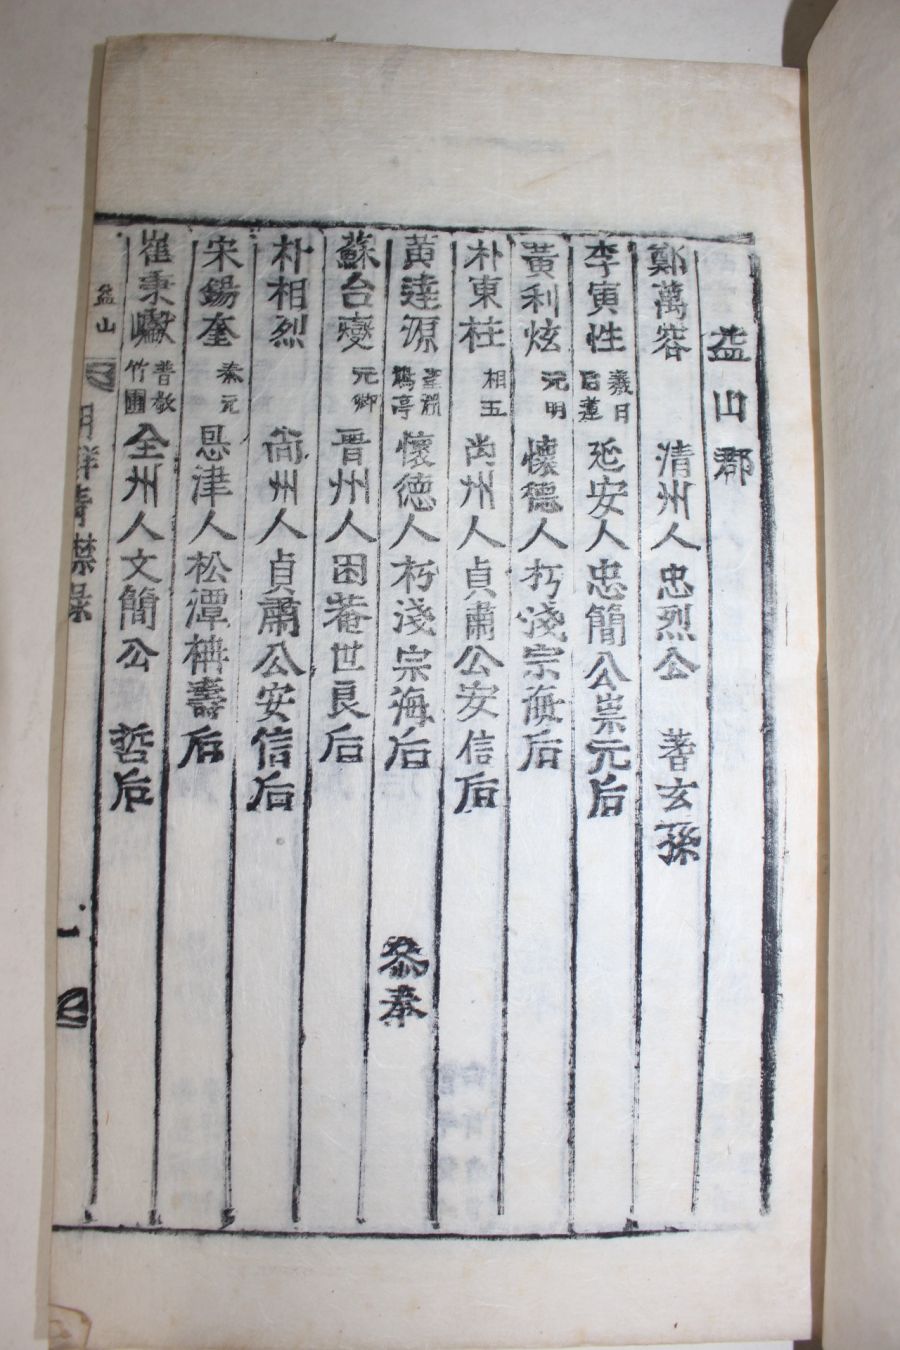 益山郡
鄭萬容 清州人忠烈公 蓍玄孫
李寅性 羲日 后蓮 延安人忠簡公崇元后
黃利炫 元明 懷德人朽淺宗海后
朴東柱 相五 尚州人貞肅公安信后
黃達源 亭 懷德人朽淺宗海后 叅奉
蘇台燮 元卿 晋州人困菴世良后
朴相烈 尙州人貞肅公安信后
宋錫奎 泰元 恩津人松潭枏壽后
崔秉巘 普敬 竹圃 仝州人文簡公 哲后
朝鮮青襟錄 益山 一